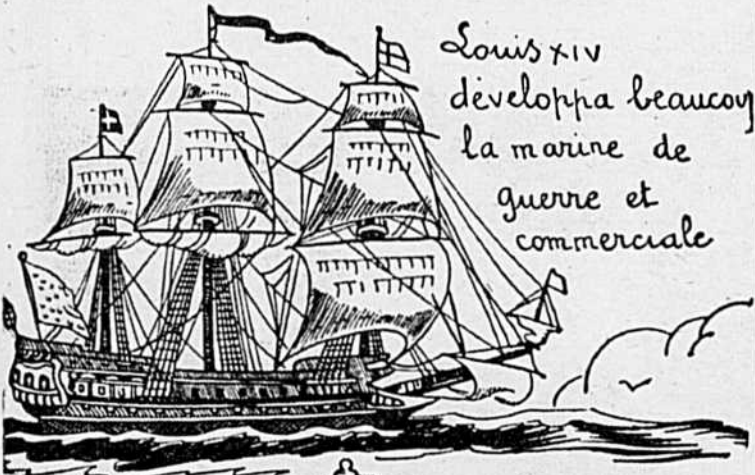 Louis XIV
développa beaucoup
la marine de
guerre et
commerciale